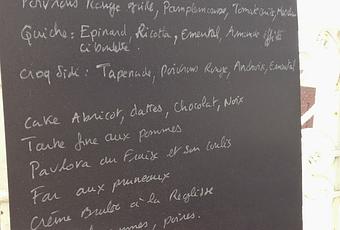 Poivrons Rouge grillé, Pamplemousse,
Quiche: Epinard, Ricotta, Emental, Amande effilée
ciboulette.
Croq Sidi: Tapenade, Poivrons Rouge, Andouix, Emental
Cake Abricot, dattes, Chocolat, Noix
Tarte fine aux pommes
Pavlova au Fraise et son coulis
Far aux pruneaux
Crème Brulée à la Reglisse
pommes, poires.